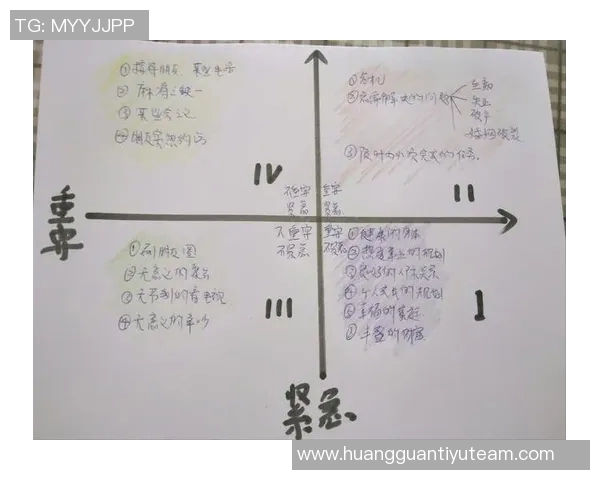 TG: MYYJJPP
①接待朋友 某些电话
②麻将三缺一
③某些会议
④朋友突然约访
①危机
②急需解决的问题
生病
失业
破产
婚姻破裂
③限时必须完成的任务.
IV
II
不重要 重要
紧急 紧急
重要
不重要 重要
不紧急 不紧急
①刷朋友圈
②无意义的
③无节制的看电视
④无意义的
III
①健康的身体
②
③良好的人际关系
④个人成长的规划
⑤幸福的家庭
⑥丰盛的
I
紧急
www.huangguantiyuteam.com